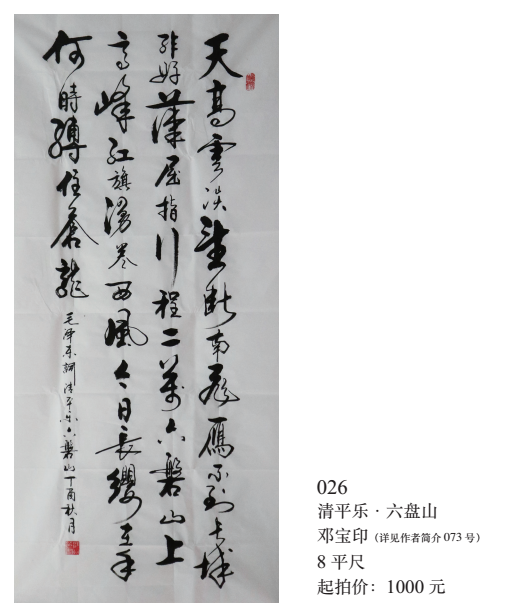 天高雲淡望斷南飛雁不到長城
非好漢屈指行程二萬六磐山上
高峰紅旗漫卷西風今日長纓在手
何時縛住蒼龍
毛泽东詞清平乐六磐山丁酉秋月
026
清平乐·六盘山
邓宝印（详见作者简介 073 号）
8 平尺
起拍价：1000 元